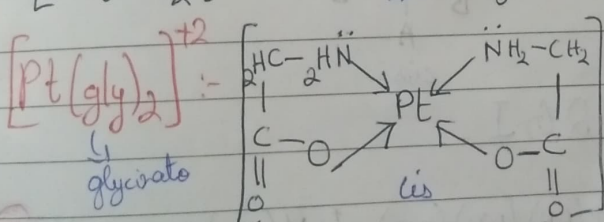 [Pt(gly)₂]⁺² :-
glycinato
₂HC – ₂HN̈
N̈H₂–CH₂
Pt
C – O
O–C
O
cis
O